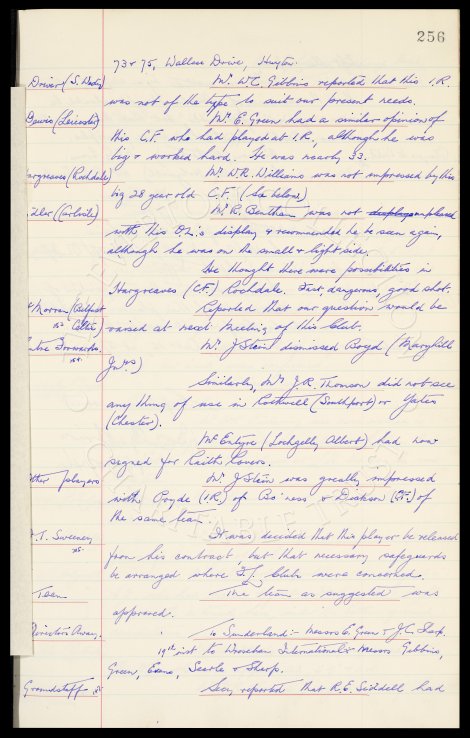 256
73 & 75, Wallace Drive, Huyton.
Driver (S. Wed'y) Mr. W.C. Gibbins reported that this I.R.
was not of the type to suit our present needs.
Davis (Leicester) Mr. E. Green had a similar opinion of
this C.F. who had played at I.R., although he was
big & worked hard. He was nearly 33.
argreaves (Rochdale) Mr. W.R. Williams was not impressed by this
big 28 year old C.F. (See below)
dler (Carlisle) Mr. R. Bentham was not displeased
with this O.L's display & recommended he be seen again,
although he was on the small & light side.
He thought there were possibilities in
Hargreaves (C.F.) Rochdale. Fast, dangerous, good shot.
Morran (Belfast Celtic) Reported that our question would be
raised at next meeting of this Club.
ntre Forwards. Mr. J Stein dismissed Boyd (Maryhill
Jnrs)
Similarly, Mr. J.R. Thomson did not see
any thing of use in Rothwell (Southport) or Yates
(Chester).
McEntyre (Lochgelly Albert) had now
signed for Raith Rovers.
ther players Mr. J Stein was greatly impressed
with Coyde (I.R.) of Bo'ness & Dickson of
the same team.
.T. Sweeney It was decided that this player be released
from his contract, but that necessary safeguards
be arranged where F.L. Clubs were concerned.
Team The team as suggested was
approved.
Directors Away. To Sunderland:- Messrs E. Green & J.C. Sharp.
19th inst to Wrexham International:- Messrs Gibbins,
Green, Evans, Searle & Sharp.
Groundstaff Secy reported that R.E. Siddell had